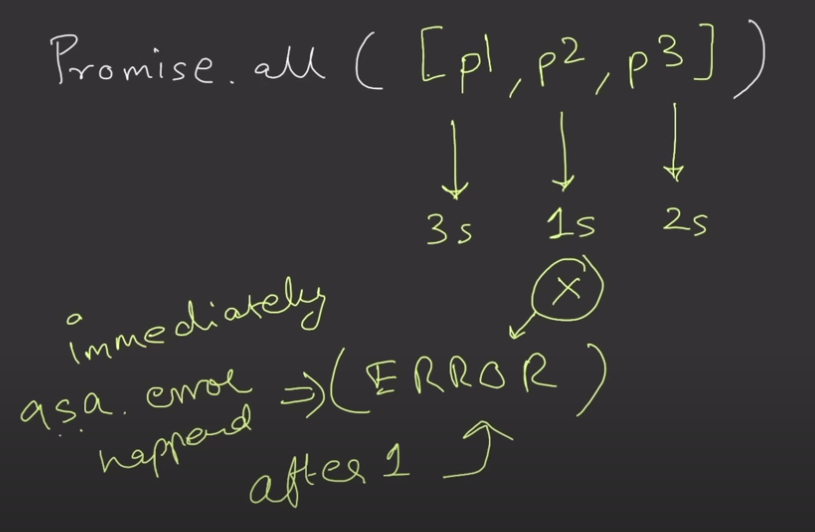 Promise.all ( [p1, p2, p3] )
3s 1s 2s
X
immediately
a.s.a. error => (ERROR)
happend
after 1